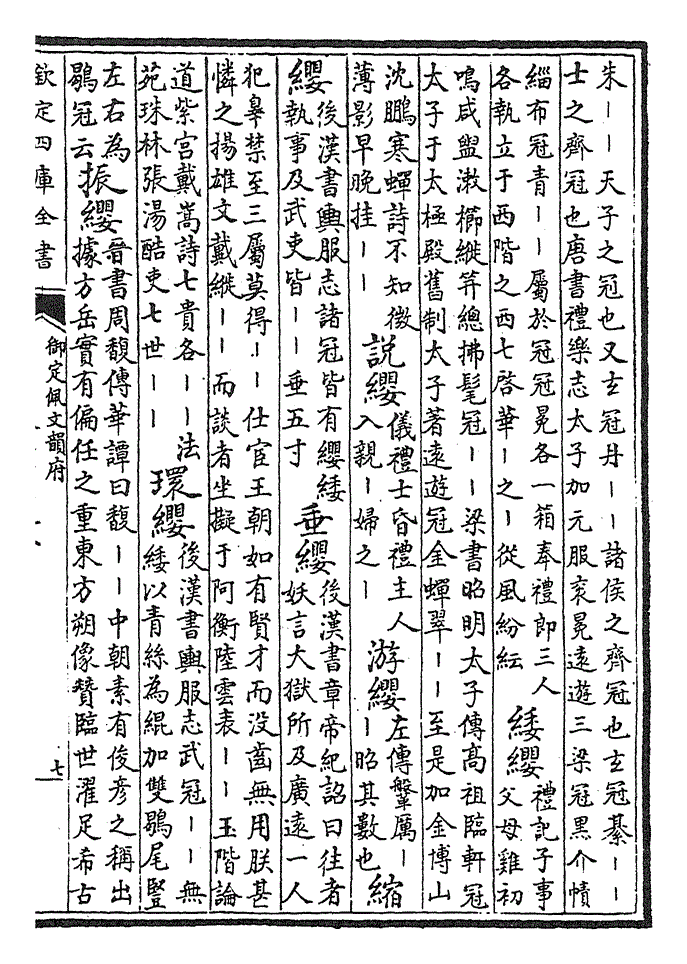 朱——天子之冠也又玄冠丹——諸侯之齊冠也玄冠綦——
士之齊冠也唐書禮樂志太子加元服衮冕遠遊三梁冠黑介幘
緇布冠青——屬於冠冠冕各一箱奉禮郎三人
各執立于西階之西七啓華—之—從風紛紜
緌纓
禮記子事
父母雞初
鳴咸盥漱櫛縰笄總拂髦冠——梁書昭明太子傳高祖臨軒冠
太子于太極殿舊制太子著遠遊冠金蟬翠——至是加金博山
沈鵬寒蟬詩不知微
薄影早晚挂——
說纓
儀禮士昏禮主人
入親—婦之—
游纓
左傳鞶厲—
—昭其數也
縮
纓
後漢書輿服志諸冠皆有纓緌
執事及武吏皆——垂五寸
垂纓
後漢書章帝紀詔曰往者
妖言大獄所及廣遠一人
犯辠禁至三屬莫得——仕宦王朝如有賢才而没齒無用朕甚
憐之揚雄文戴縰——而談者坐擬于阿衡陸雲表——玉階論
道紫宮戴嵩詩七貴各——法
苑珠林張湯酷吏七世——
環纓
後漢書輿服志武冠——無
緌以青絲為緄加雙鶡尾豎
左右為
鶡冠云
振纓
晉書周馥傳華譚曰馥——中朝素有俊彥之稱出
據方岳實有偏任之重東方朔像贊臨世濯足希古
欽定四庫全書
御定佩文韻府
七